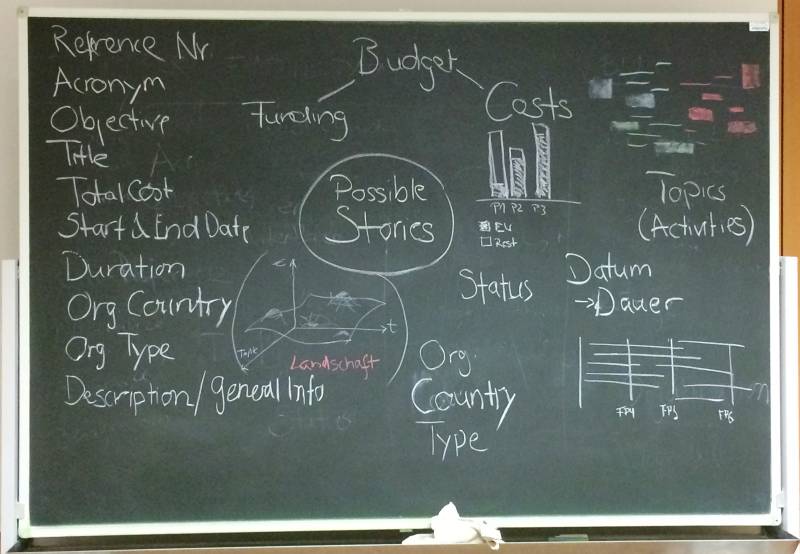 Reference Nr
Acronym
Objective
Title
Total Cost
Start & End Date
Duration
Org Country
Org Type
Description/General Info
Budget
Funding
Costs
Possible
Stories
P1 P2 P3
EU
Rest
Topics
(Activities)
Status
Datum
→Dauer
€
t
Topic
Landschaft
Org.
Country
Type
FP4 FP5 FP6